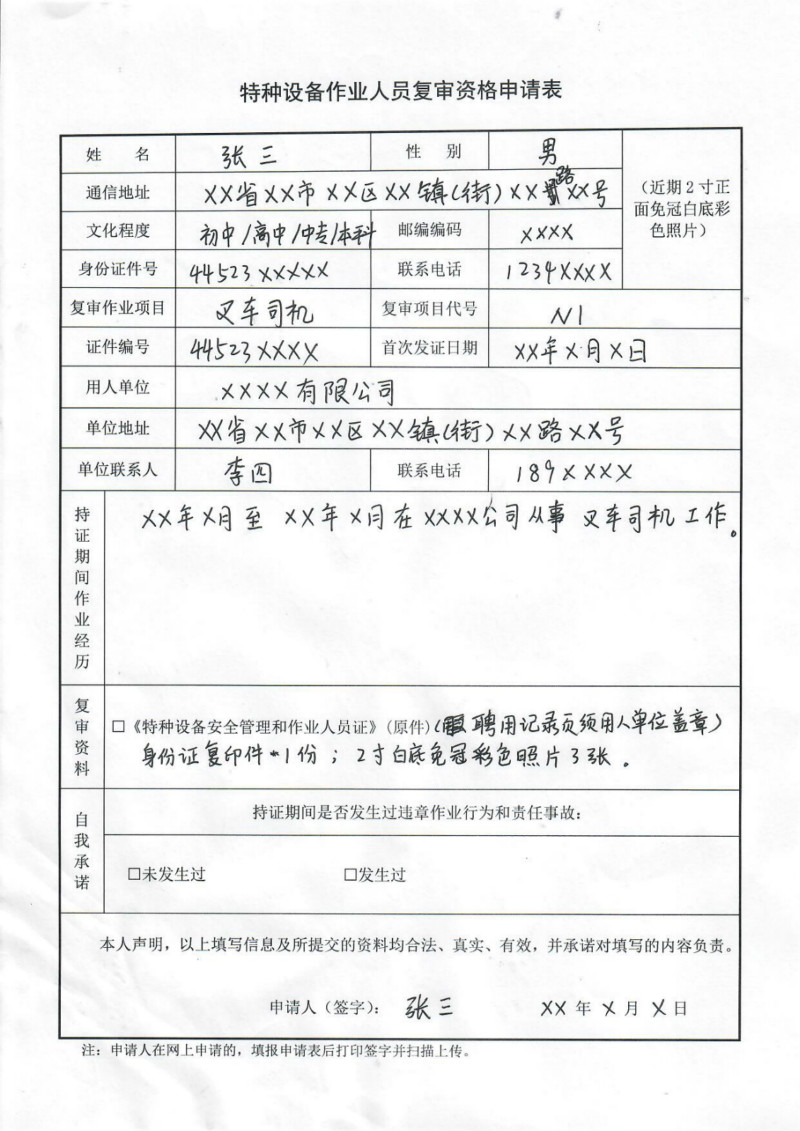 特种设备作业人员复审资格申请表
姓 名 张三 性 别 男
通信地址 XX省XX市XX区XX镇(街)XX路XX号
(近期2寸正
面免冠白底彩
色照片)
文化程度 初中/高中/中专/本科 邮编编码 XXXX
身份证件号 44523XXXXX 联系电话 1234XXXX
复审作业项目 叉车司机 复审项目代号 N1
证件编号 44523XXXX 首次发证日期 XX年X月X日
用人单位 XXXX有限公司
单位地址 XX省XX市XX区XX镇(街)XX路XX号
单位联系人 李四 联系电话 189XXXX
持证期间作业经历 XX年X月至XX年X月在XXXX公司从事叉车司机工作。
复审资料
□《特种设备安全管理和作业人员证》(原件)(聘用记录页须用人单位盖章)
身份证复印件1份;2寸白底免冠彩色照片3张。
自我承诺
持证期间是否发生过违章作业行为和责任事故:
□未发生过 □发生过
本人声明,以上填写信息及所提交的资料均合法、真实、有效,并承诺对填写的内容负责。
申请人(签字): 张三 XX年X月X日
注:申请人在网上申请的,填报申请表后打印签字并扫描上传。